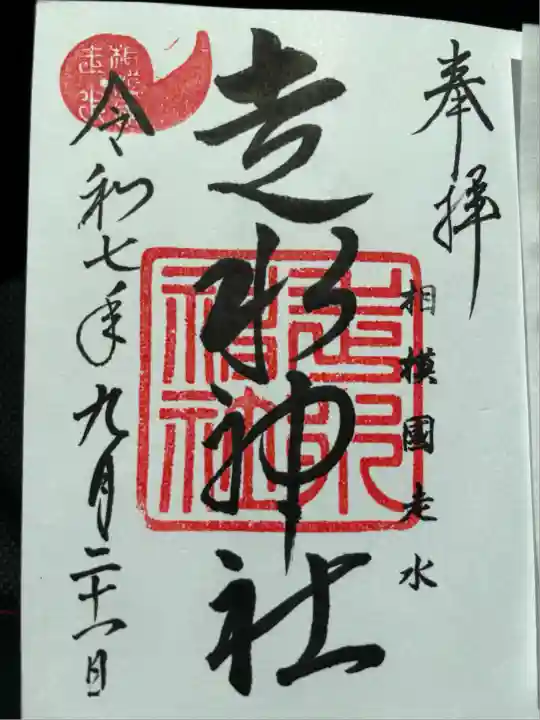 奉拝
相模國走水
走水神社
走水神社
令和七年九月二十一日